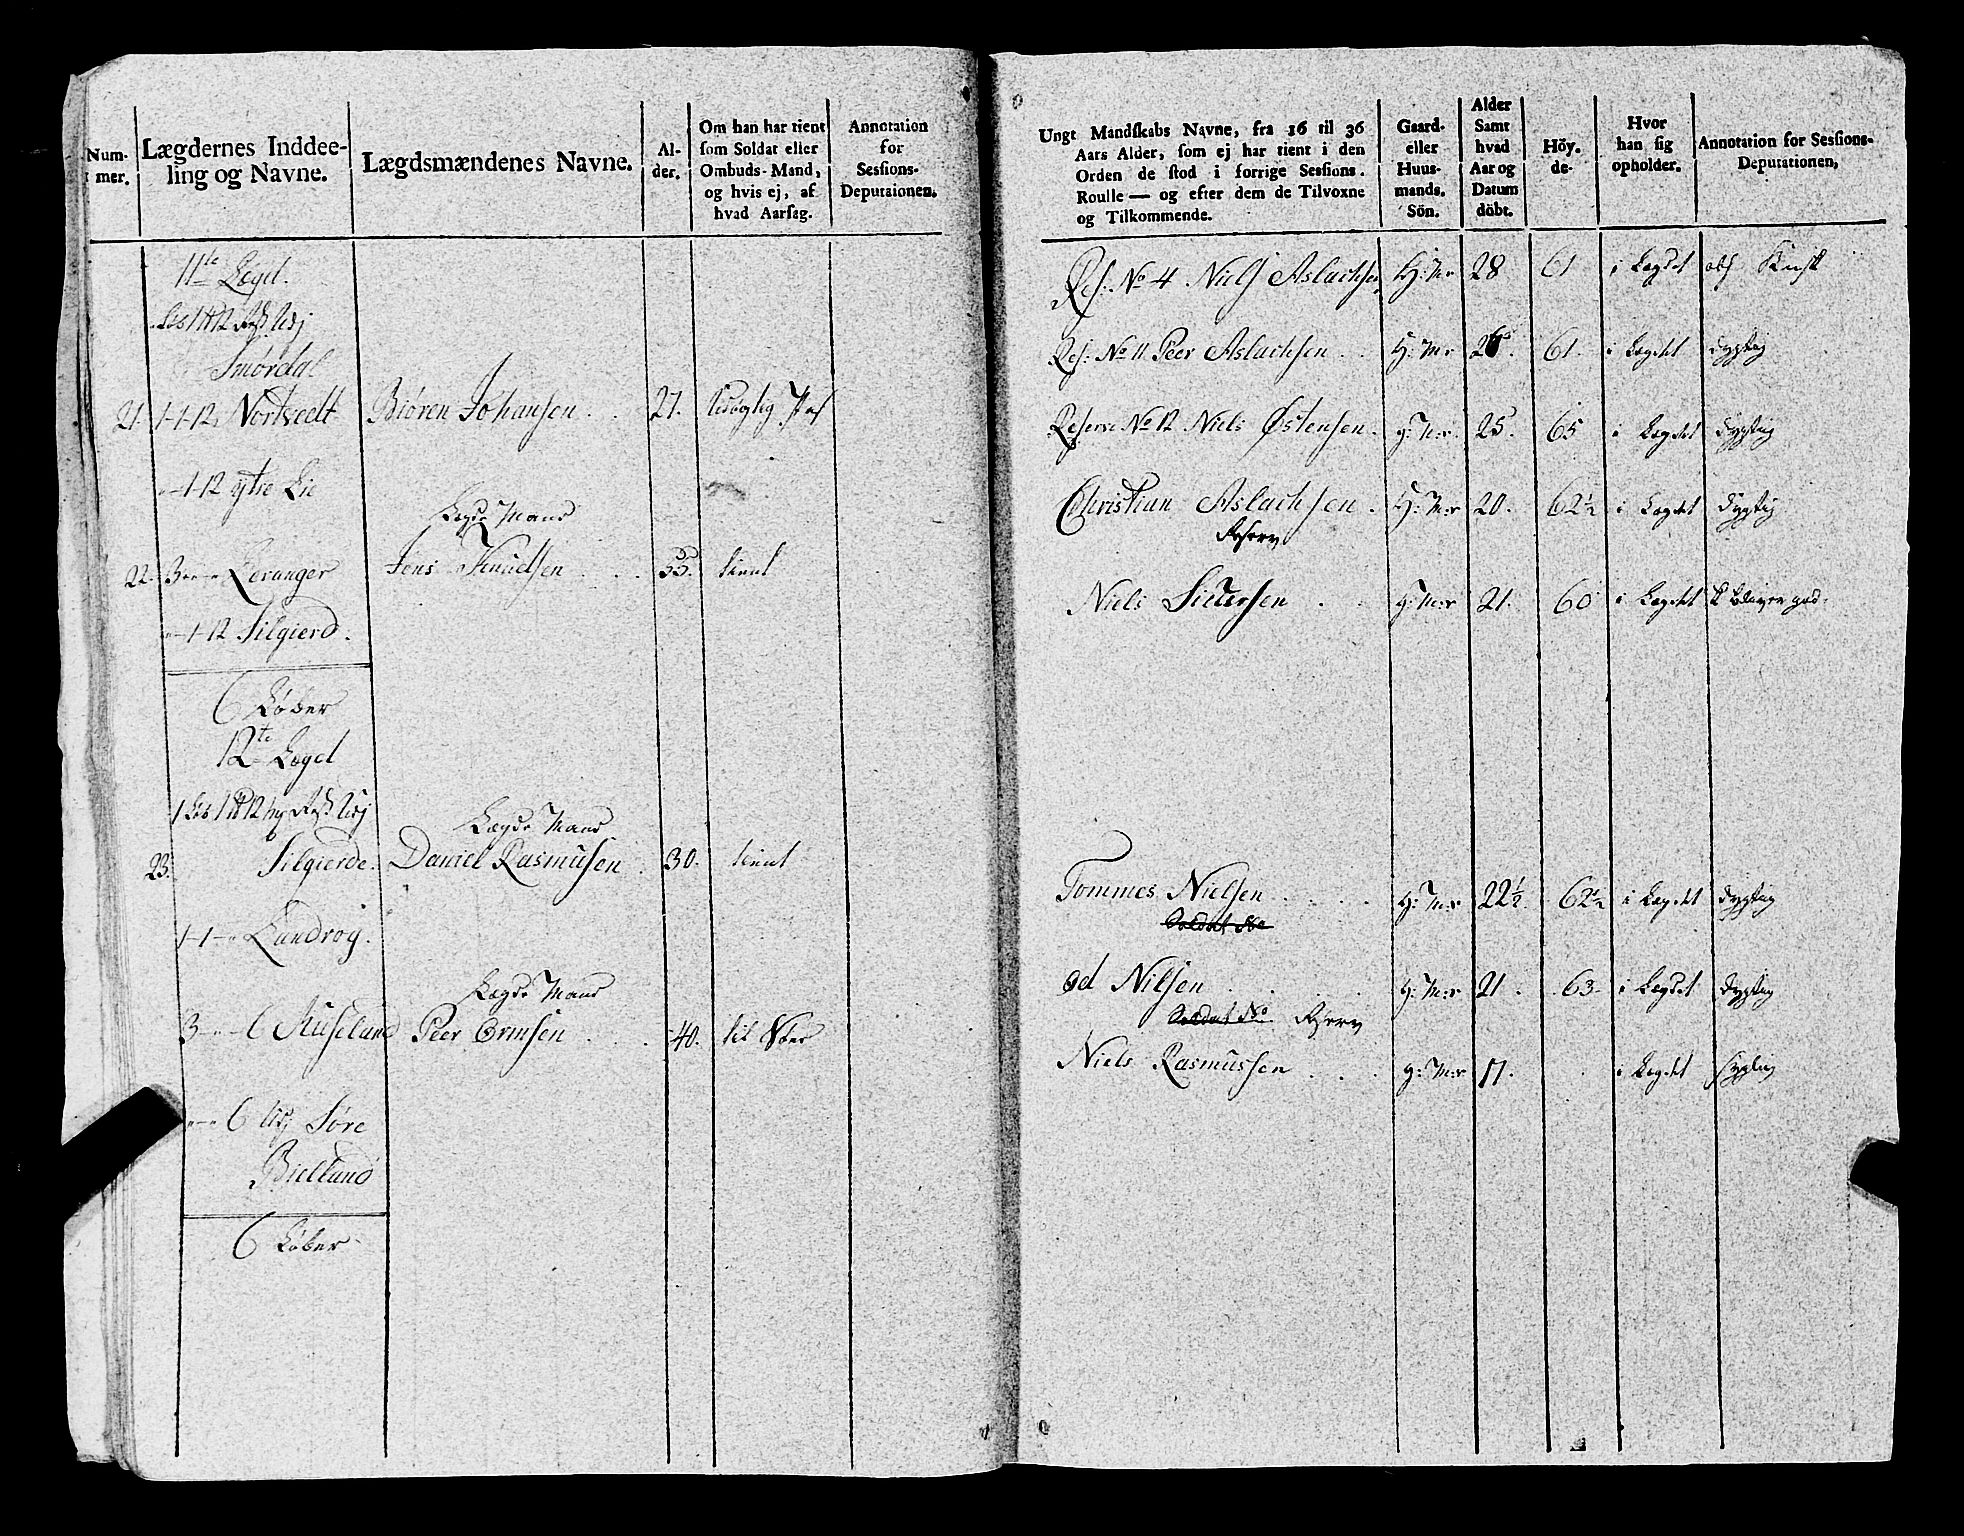 Num-
mer.
Lægdernes Inddee-
ling og Navne.
Lægdsmændenes Navne.
Al-
der.
Om han har tient
som Soldat eller
Ombuds-Mand,
og hvis ej, af
hvad Aarsag.
Annotation
for
Sessions-
Deputaionen.
11te Lægd.
Smørdal
21. 1-1-12 Nortvedt Biøren Johansen . . 27.
1-12 ytre Lie
Lægds Mand
22. 3 Leranger Jens Knudsen . . . 53. tient
1-12 Silgierd.
6 Løber
12te Lægd
Lægds Mand
23. Silgierde. Daniel Rasmusen . 30. tient
1-1 Lundrøg.
Lægds Mand
3 6 Auseland Peer Ormsen . . . 40.
6 Søre
Bielland
6 Løber
Ungt Mandskabs Navne, fra 16 til 36
Aars Alder, som ej har tient i den
Orden de stod i forrige Sessions-
Roulle — og efter dem de Tilvoxne
og Tilkommende.
Gaard-
eller
Huus-
mands.
Sön.
Alder
Samt
hvad
Aar og
Datum
döbt.
Höy.
de.
Hvor
han sig
opholder.
Annotation for Sessions-
Deputationen,
Res: No 4 Niels Aslachsen H: M:r 28 61 i Lægdet
Res: No 11 Peer Aslachsen . . H: M:r 26. 61. i Lægdet dygtig
Reserve No 12 Niels Østensen . g: M:r. 25. 65 i Lægdet dygtig
Christian Aslachsen . H: M:r 20. 62½ i Lægdet dygtig
Reserv
Niels Siversen . . g: M:r 21. 60 i Lægdet
Tommes Nielsen . . . . H: M:r 22½. 62½ i Lægdet dygtig
Soldat No
od Nilsen . . . . H: M:r 21. 63 i Lægdet dygtig
Soldat No Reserv
Niels Rasmussen . . . g: M:r 17. . i Lægdet